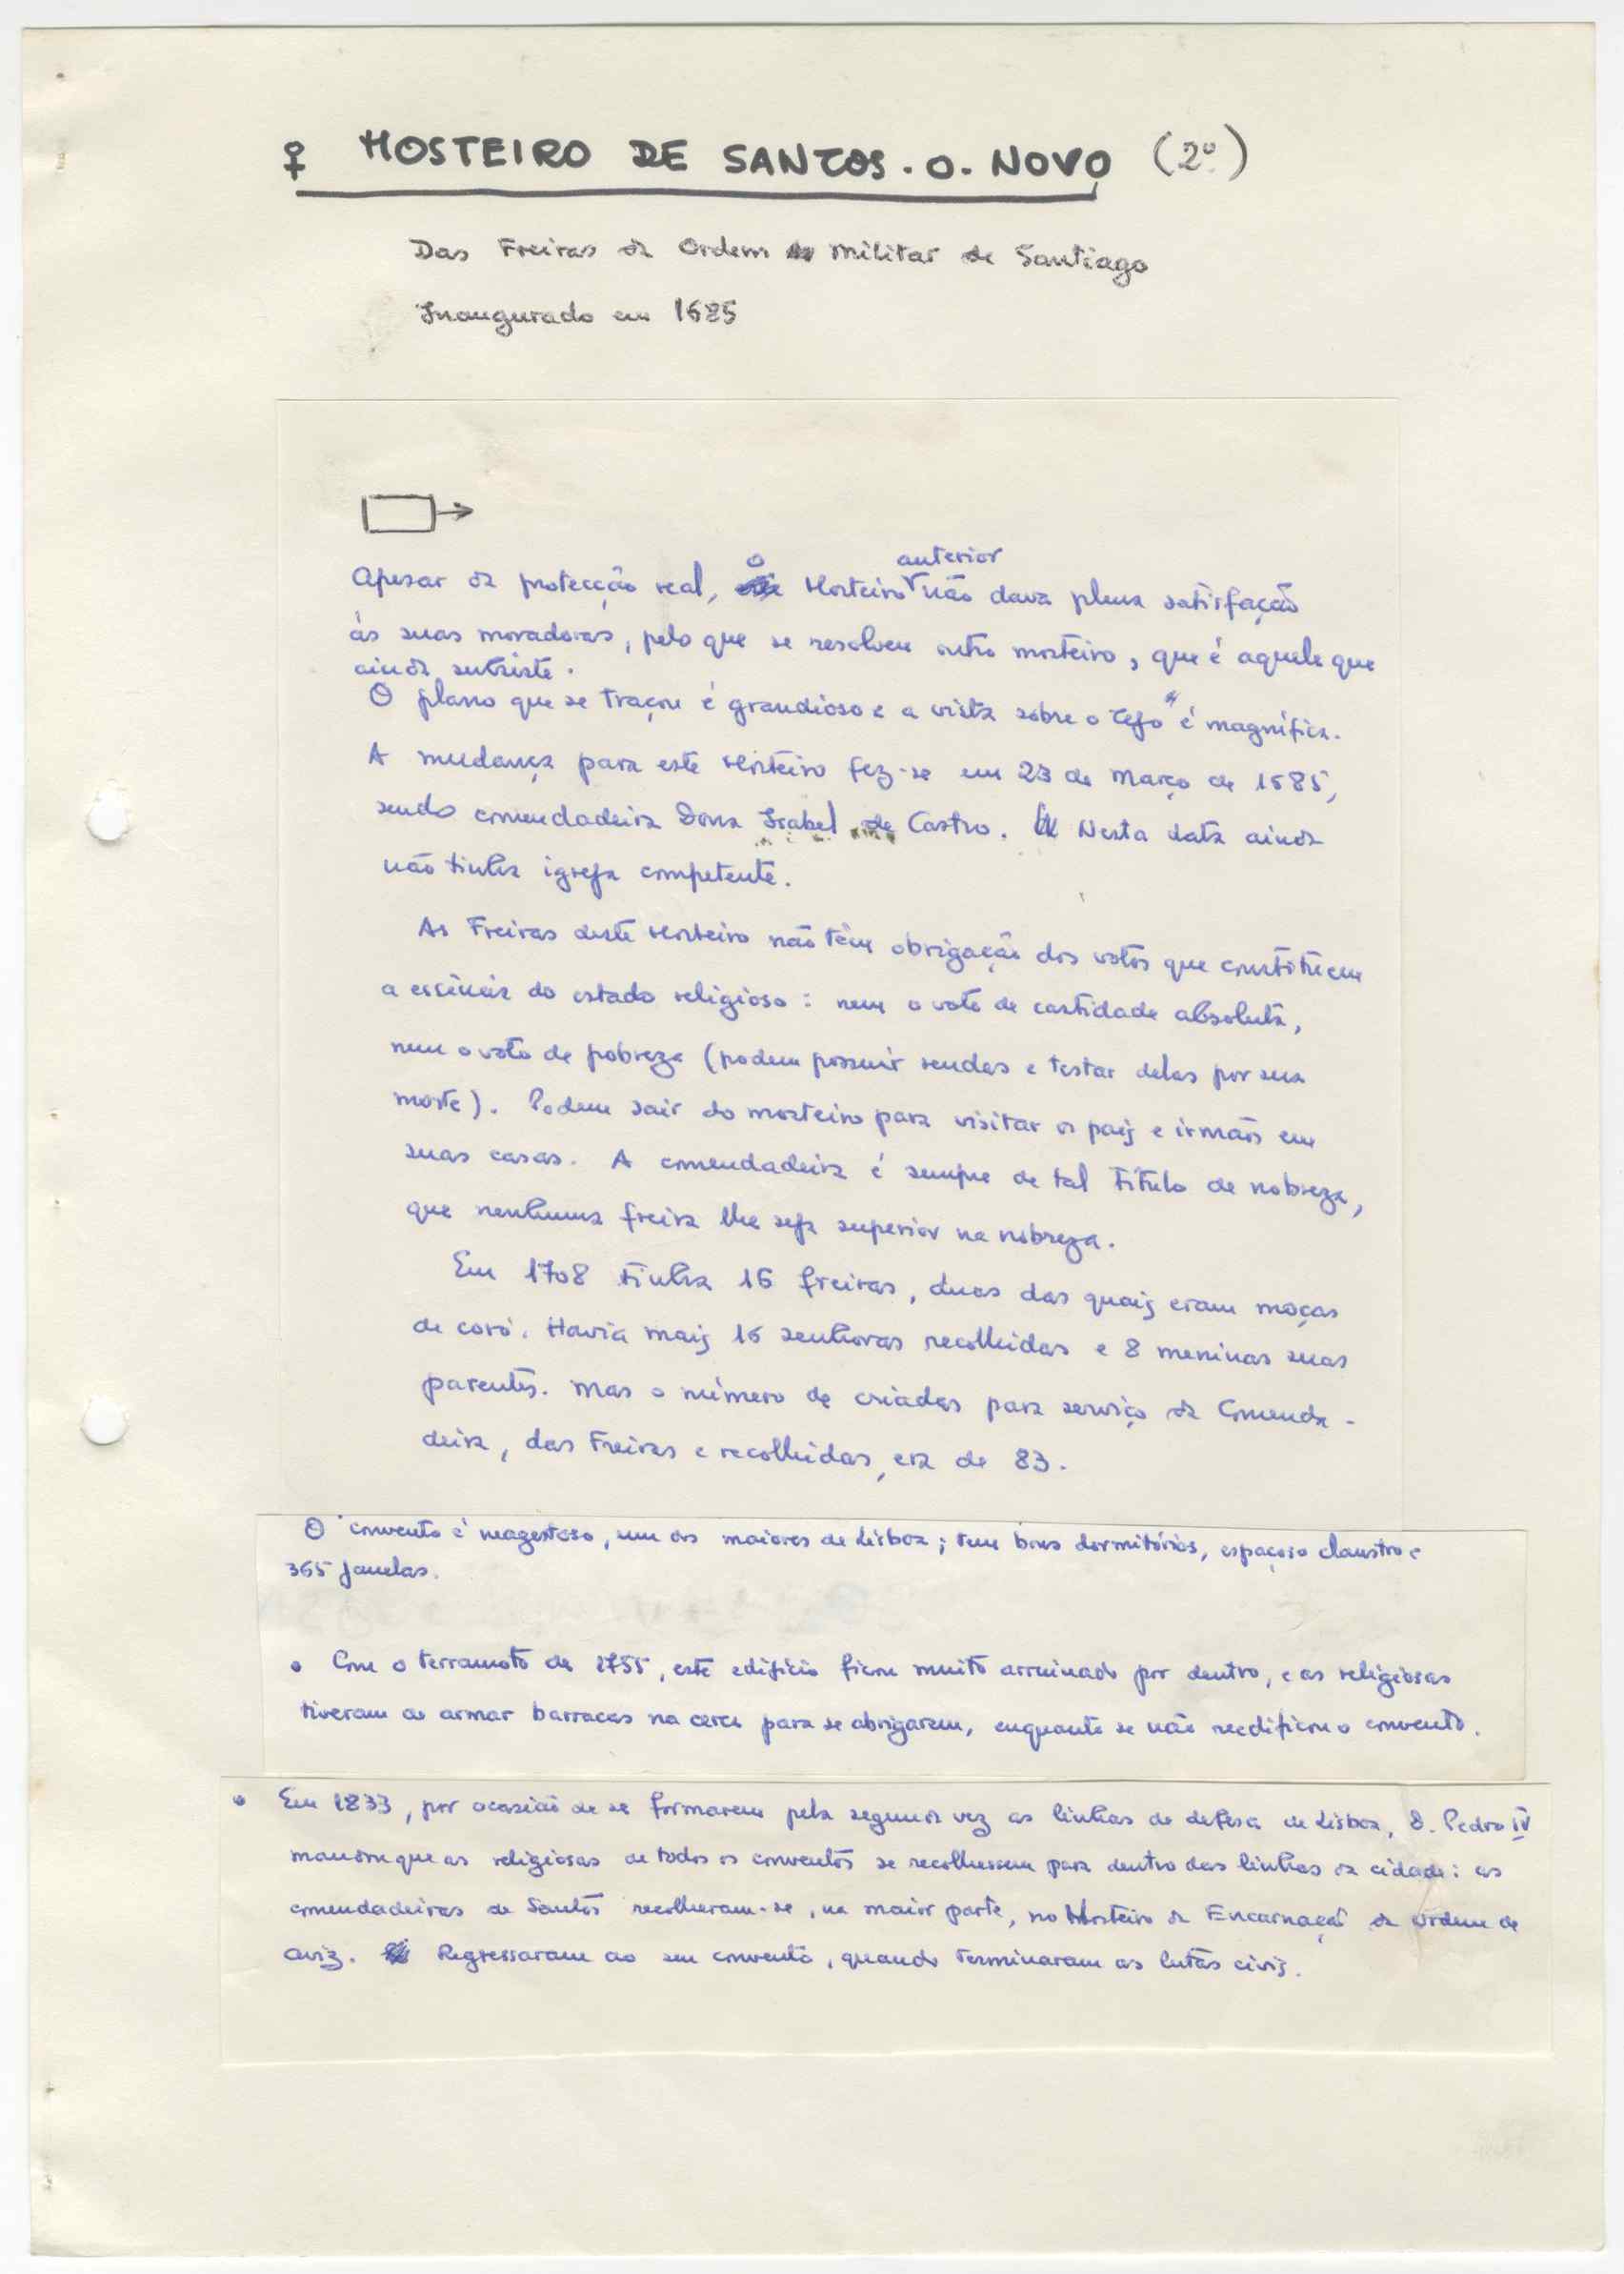 ♀ MOSTEIRO DE SANTOS-O-NOVO (2º)
Das Freiras da Ordem Militar de Santiago
Inaugurado em 1685
anterior
Apesar da protecção real, o Mosteiro não dava plena satisfação
às suas moradoras, pelo que se resolveu outro mosteiro, que é aquele que
ainda subsiste.
O plano que se traçou é grandioso e a vista sobre o Tejo é magnífica.
A mudança para este Mosteiro fez-se em 23 de Março de 1685,
sendo comendadeira Dona Isabel de Castro. Nesta data ainda
não tinha igreja competente.
As Freiras deste Mosteiro não têm obrigação dos votos que constituem
a essência do estado religioso: nem o voto de castidade absoluta,
nem o voto de pobreza (podem possuir rendas e testar delas por sua
morte). Podem sair do mosteiro para visitar os pais e irmãos em
suas casas. A comendadeira é sempre de tal título de nobreza,
que nenhuma freira lhe seja superior na nobreza.
Em 1708 tinha 16 freiras, duas das quais eram moças
de coro. Havia mais 16 senhoras recolhidas e 8 meninas suas
parentes. Mas o número de criadas para serviço da Comenda-
deira, das Freiras e recolhidas, era de 83.
O convento é magestoso, um dos maiores de Lisboa; tem bons dormitórios, espaçoso claustro e
365 janelas.
• Com o terramoto de 1755, este edifício ficou muito arruinado por dentro, e as religiosas
tiveram de armar barracas na cerca para se abrigarem, enquanto se não reedificou o convento.
• Em 1833, por ocasião de se formarem pela segunda vez as linhas de defesa de Lisboa, D. Pedro IV
mandou que as religiosas de todos os conventos se recolhessem para dentro das linhas da cidade: as
comendadeiras de Santos recolheram-se, na maior parte, no Mosteiro da Encarnação da Ordem de
Aviz. Regressaram ao seu convento, quando terminaram as lutas civis.